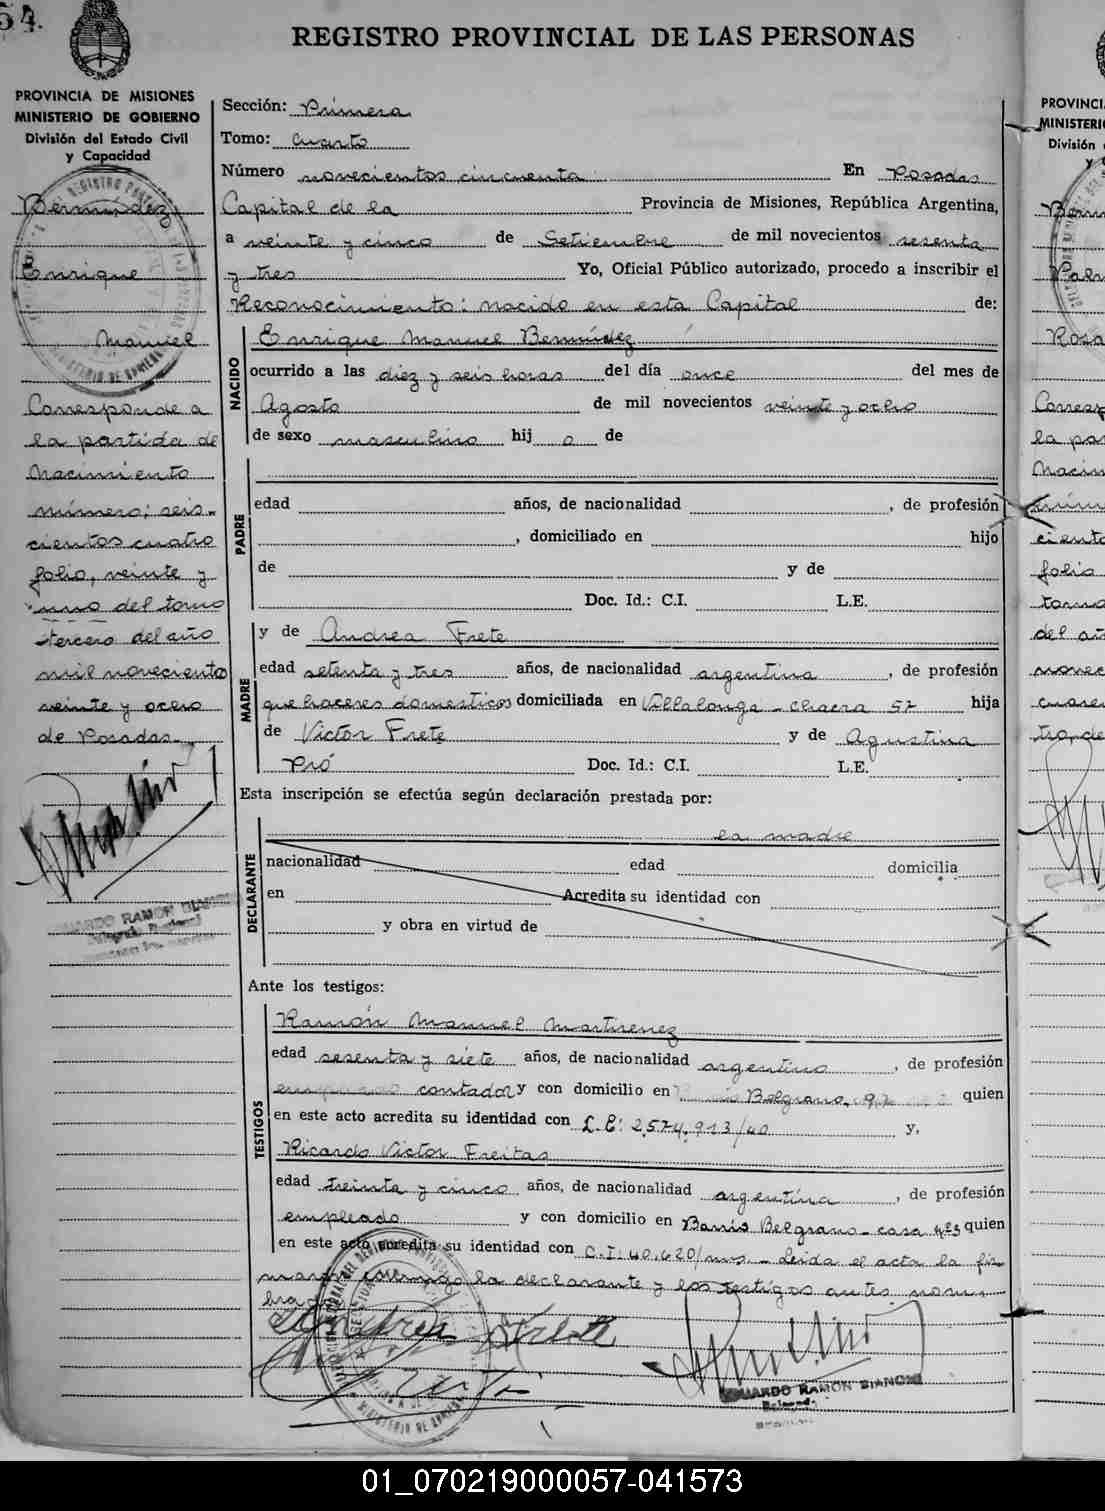 54.
REGISTRO PROVINCIAL DE LAS PERSONAS
PROVINCIA DE MISIONES
MINISTERIO DE GOBIERNO
División del Estado Civil
y Capacidad
Bermúdez
Enrique
Manuel
Corresponde a
la partida de
Nacimiento
número; seis-
cientos cuatro
folio, veinte y
uno del tomo
tercero del año
mil noveciento
veinte y ocho
de Posadas.
EDUARDO RAMON BIANCHI
Sección: Primera
Tomo: Cuarto
Número novecientos cincuenta En Posadas
Capital de la Provincia de Misiones, República Argentina,
a veinte y cinco de Setiembre de mil novecientos sesenta
y tres Yo, Oficial Público autorizado, procedo a inscribir el
Reconocimiento: nacido en esta Capital de:
NACIDO
Enrique Manuel Bermúdez
ocurrido a las diez y seis horas del día once del mes de
Agosto de mil novecientos veinte y ocho
de sexo masculino hij o de
PADRE
edad años, de nacionalidad , de profesión
, domiciliado en hijo
de y de
Doc. Id.: C.I. L.E.
MADRE
y de Andrea Frete
edad setenta y tres años, de nacionalidad argentina , de profesión
que haceres domesticos domiciliada en Villalonga - chacra 57 hija
de Victor Frete y de Agustina
Pró Doc. Id.: C.I. L.E.
Esta inscripción se efectúa según declaración prestada por:
DECLARANTE
la madre
nacionalidad edad domicilia
en Acredita su identidad con
y obra en virtud de
Ante los testigos:
TESTIGOS
Ramón Manuel Martirenez
edad sesenta y siete años, de nacionalidad argentino , de profesión
contador y con domicilio en Belgrano, quien
en este acto acredita su identidad con L.E: 2.574.913/40 y,
Ricardo Victor Freitas
edad treinta y cinco años, de nacionalidad argentina , de profesión
empleado y con domicilio en Barrio Belgrano - casa nº3 quien
en este acto acredita su identidad con C.I: 40.620/mns. - Leida el acta la fir-
man conmigo la declarante y los testigos antes nom-
brados
Andrea Frete
EDUARDO RAMON BIANCHI
PROVINCI
MINISTERI
División
Rosa
01_070219000057-041573